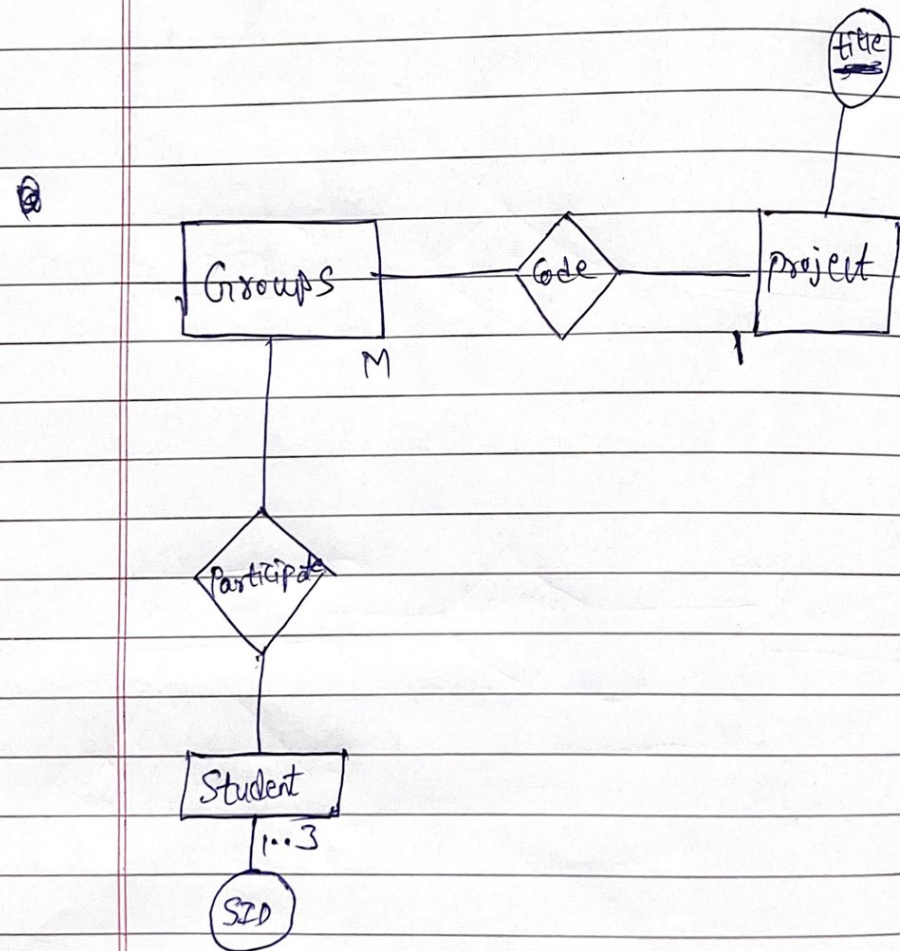 title
Groups
Code
project
M
1
Participate
Student
1..3
SID